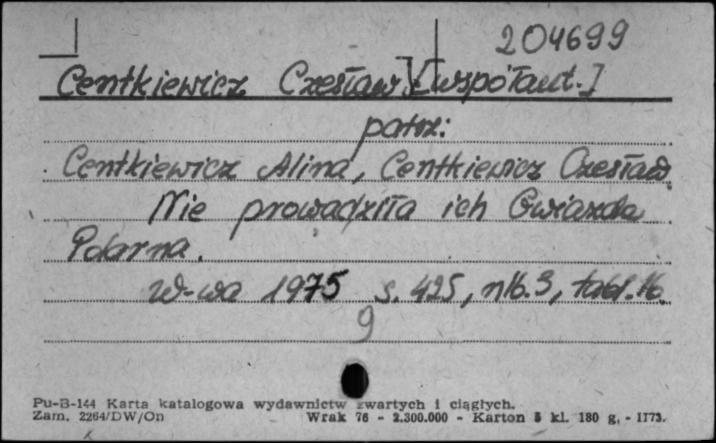 204699
Centkiewicz Czesław [współaut.]
patrz:
Centkiewicz Alina, Centkiewicz Czesław
Nie prowadziła ich Gwiazda
Polarna.
W-wa 1975 s. 425, nlb. 3, tabl. 16.
9
Pu-B-144 Karta katalogowa wydawnictw zwartych i ciągłych.
Zam. 2264/DW/On Wrak 76 - 2.300.000 - Karton 5 kl. 180 g. - 1173.